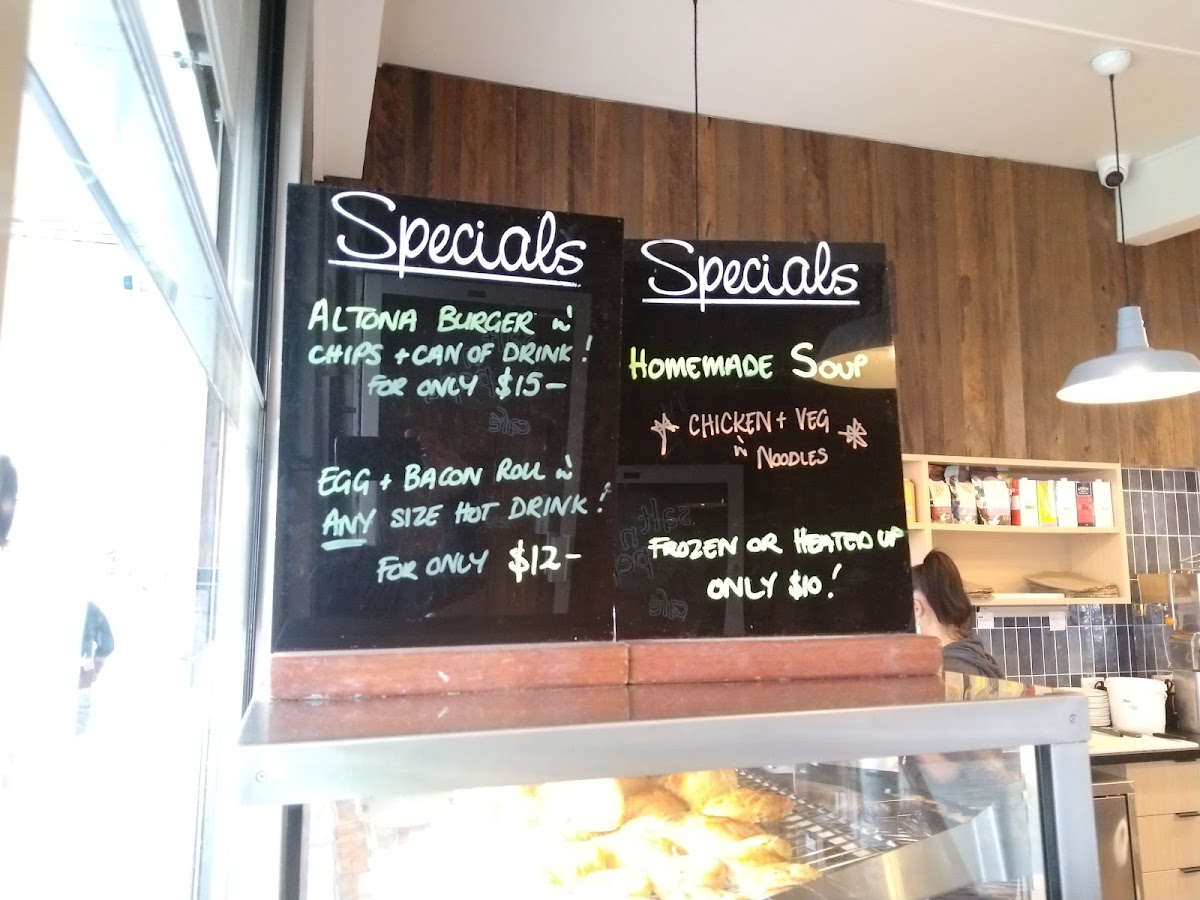 Specials
ALTONA BURGER w/
CHIPS + CAN OF DRINK!
FOR ONLY $15—
EGG + BACON ROLL w/
ANY SIZE HOT DRINK!
FOR ONLY $12—
Specials
HOMEMADE SOUP
CHICKEN + VEG
w/ NOODLES
FROZEN OR HEATED UP
ONLY $10!
salt n
café
café